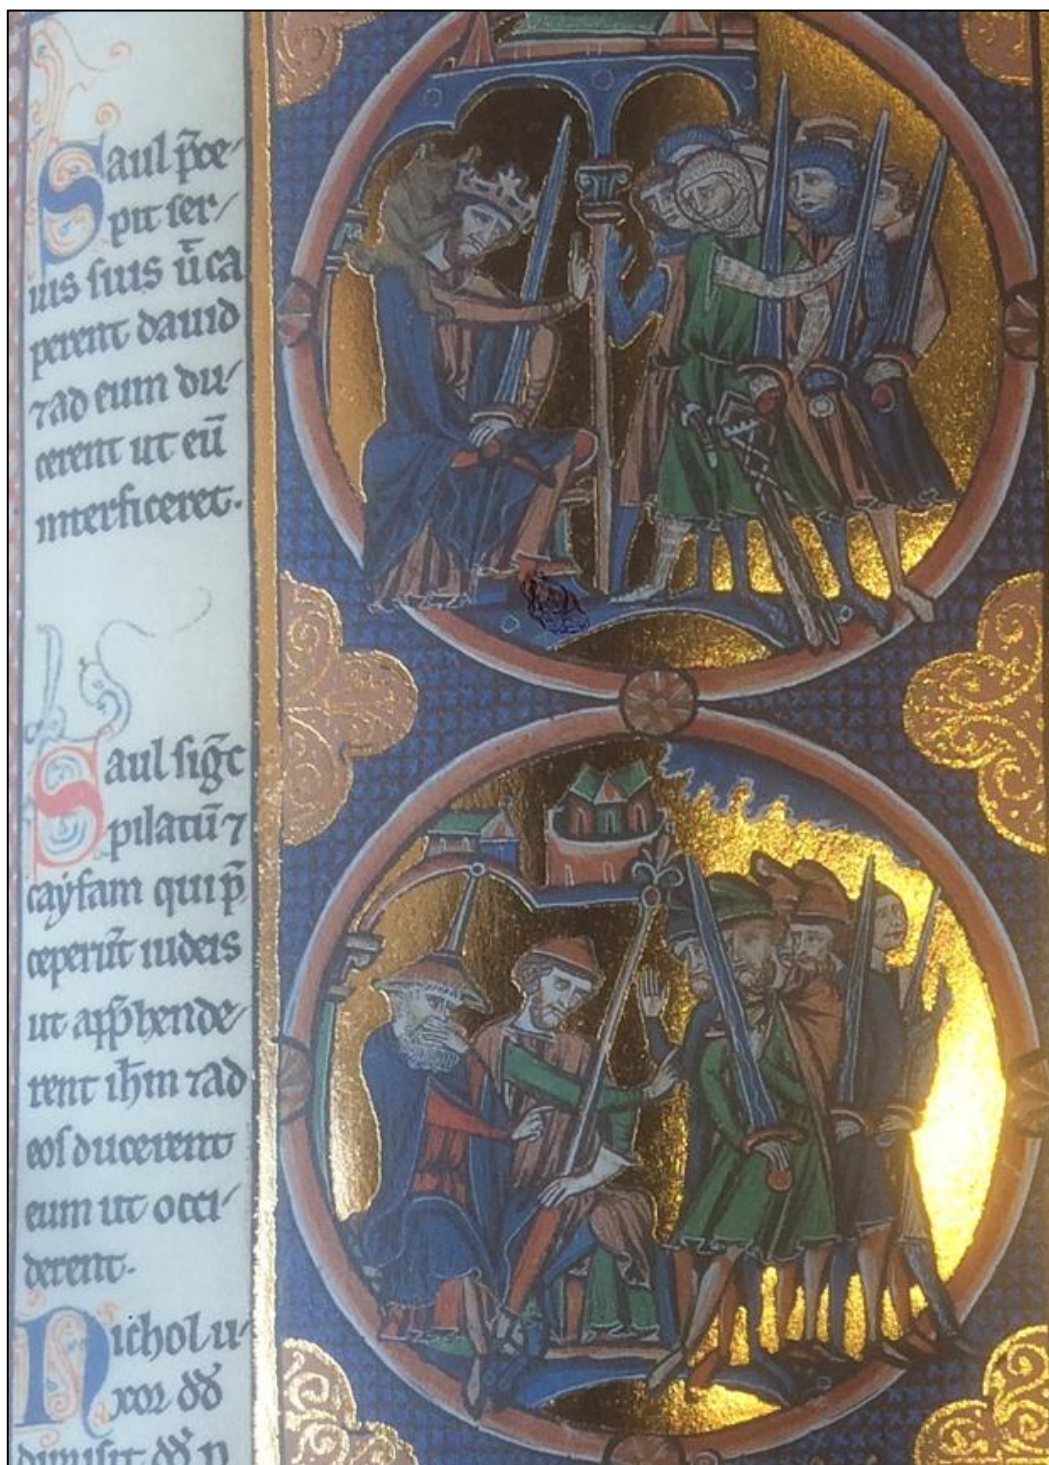 Saul p̄ce/
pit ser/
uis suis ūt ca
perent dauid
⁊ ad eum du/
cerent ut eū
interficeret.
Saul siḡt
pilatū ⁊
cayfam qui p̄
ceperūt iudeis
ut app̄hende/
rent ih̄m ⁊ ad
eos ducerent
eum ut occi/
derent.
Nichol u/
xor dd̄
dimisit dd̄ p